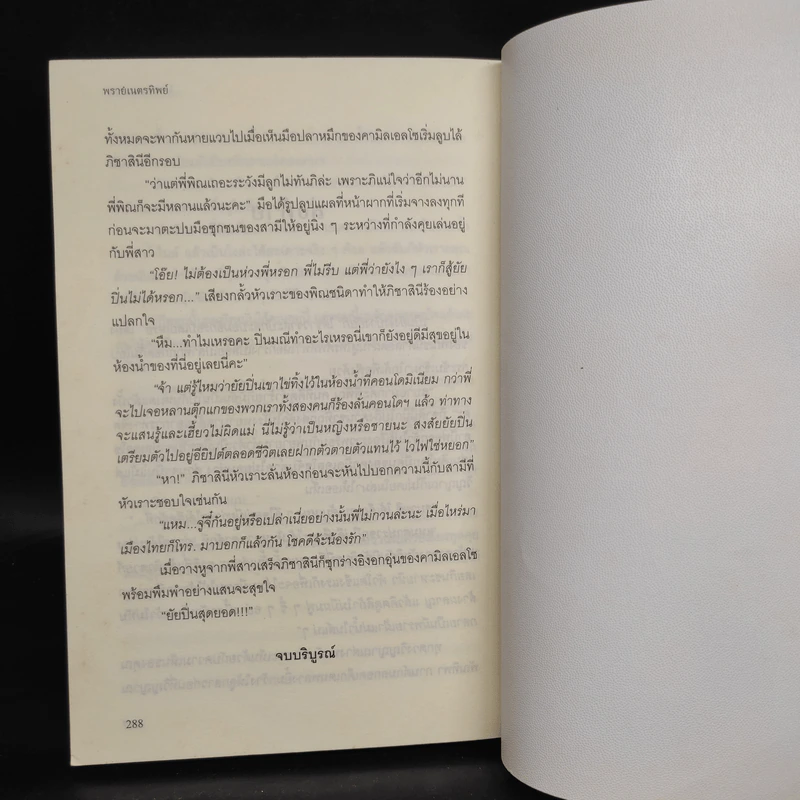 พรายเนตรทิพย์
ทั้งหมดจะพากันหายแวบไปเมื่อเห็นมือปลาหมึกของคามิลเอลโซเริ่มลูบไล้
ภิซาสินีอีกรอบ
"ว่าแต่พี่พิณเถอะระวังมีลูกไม่ทันภิล่ะ เพราะภิแน่ใจว่าอีกไม่นาน
พี่พิณก็จะมีหลานแล้วนะคะ" มือได้รูปลูบแผลที่หน้าผากที่เริ่มจางลงทุกที
ก่อนจะมาตะปบมือซุกซนของสามีให้อยู่นิ่ง ๆ ระหว่างที่กำลังคุยเล่นอยู่
กับพี่สาว
"โอ๊ย! ไม่ต้องเป็นห่วงพี่หรอก พี่ไม่รีบ แต่พี่ว่ายังไง ๆ เราก็สู้ยัย
ปิ่นไม่ได้หรอก..." เสียงกลั้วหัวเราะของพิณชนิดาทำให้ภิซาสินีร้องอย่าง
แปลกใจ
"หืม...ทำไมเหรอคะ ปิ่นมณีทำอะไรเหรอนี่เขาก็ยังอยู่ดีมีสุขอยู่ใน
ห้องน้ำของที่นี่อยู่เลยนี่คะ"
"จ้า แต่รู้ไหมว่ายัยปิ่นเขาไข่ทิ้งไว้ในห้องน้ำที่คอนโดมิเนียม กว่าพี่
จะไปเจอหลานตุ๊กแกของพวกเราทั้งสองคนก็ร้องลั่นคอนโดฯ แล้ว ท่าทาง
จะแสนรู้และเฮี้ยวไม่ผิดแม่ นี่ไม่รู้ว่าเป็นหญิงหรือชายนะ สงสัยยัยปิ่น
เตรียมตัวไปอยู่อียิปต์ตลอดชีวิตเลยฝากตัวตายตัวแทนไว้ ไวไฟใช่หยอก"
"หา!" ภิซาสินีหัวเราะลั่นห้องก่อนจะหันไปบอกความนี้กับสามีที่
หัวเราะชอบใจเช่นกัน
"แหม...จู๋จี๋กันอยู่หรือเปล่าเนี่ยอย่างนั้นพี่ไม่กวนล่ะนะ เมื่อไหร่มา
เมืองไทยก็โทร. มาบอกก็แล้วกัน โชคดีจ้ะน้องรัก"
เมื่อวางหูจากพี่สาวเสร็จภิซาสินีก็ซุกร่างอิงอกอุ่นของคามิลเอลโซ
พร้อมพึมพำอย่างแสนจะสุขใจ
"ยัยปิ่นสุดยอด!!!"
จบบริบูรณ์
288